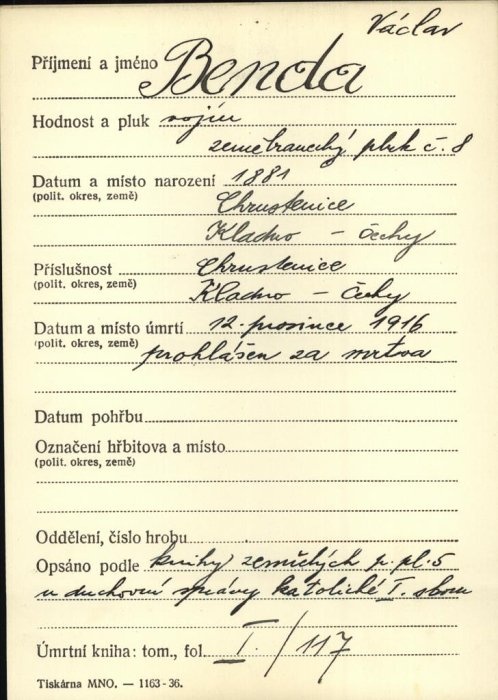 Václav
Příjmení a jméno Benda
Hodnost a pluk vojín
zeměbranecký pluk č. 8
Datum a místo narození 1881
(polit. okres, země) Chrustenice
Kladno – Čechy
Příslušnost Chrustenice
(polit. okres, země) Kladno – Čechy
Datum a místo úmrtí 12. prosince 1916
(polit. okres, země) prohlášen za mrtva
Datum pohřbu
Označení hřbitova a místo
(polit. okres, země)
Oddělení, číslo hrobu
Opsáno podle knihy zemřelých p. pl. 5
u duchovní správy katolické I. sboru
Úmrtní kniha: tom., fol. I. / 117
Tiskárna MNO. — 1163-36.